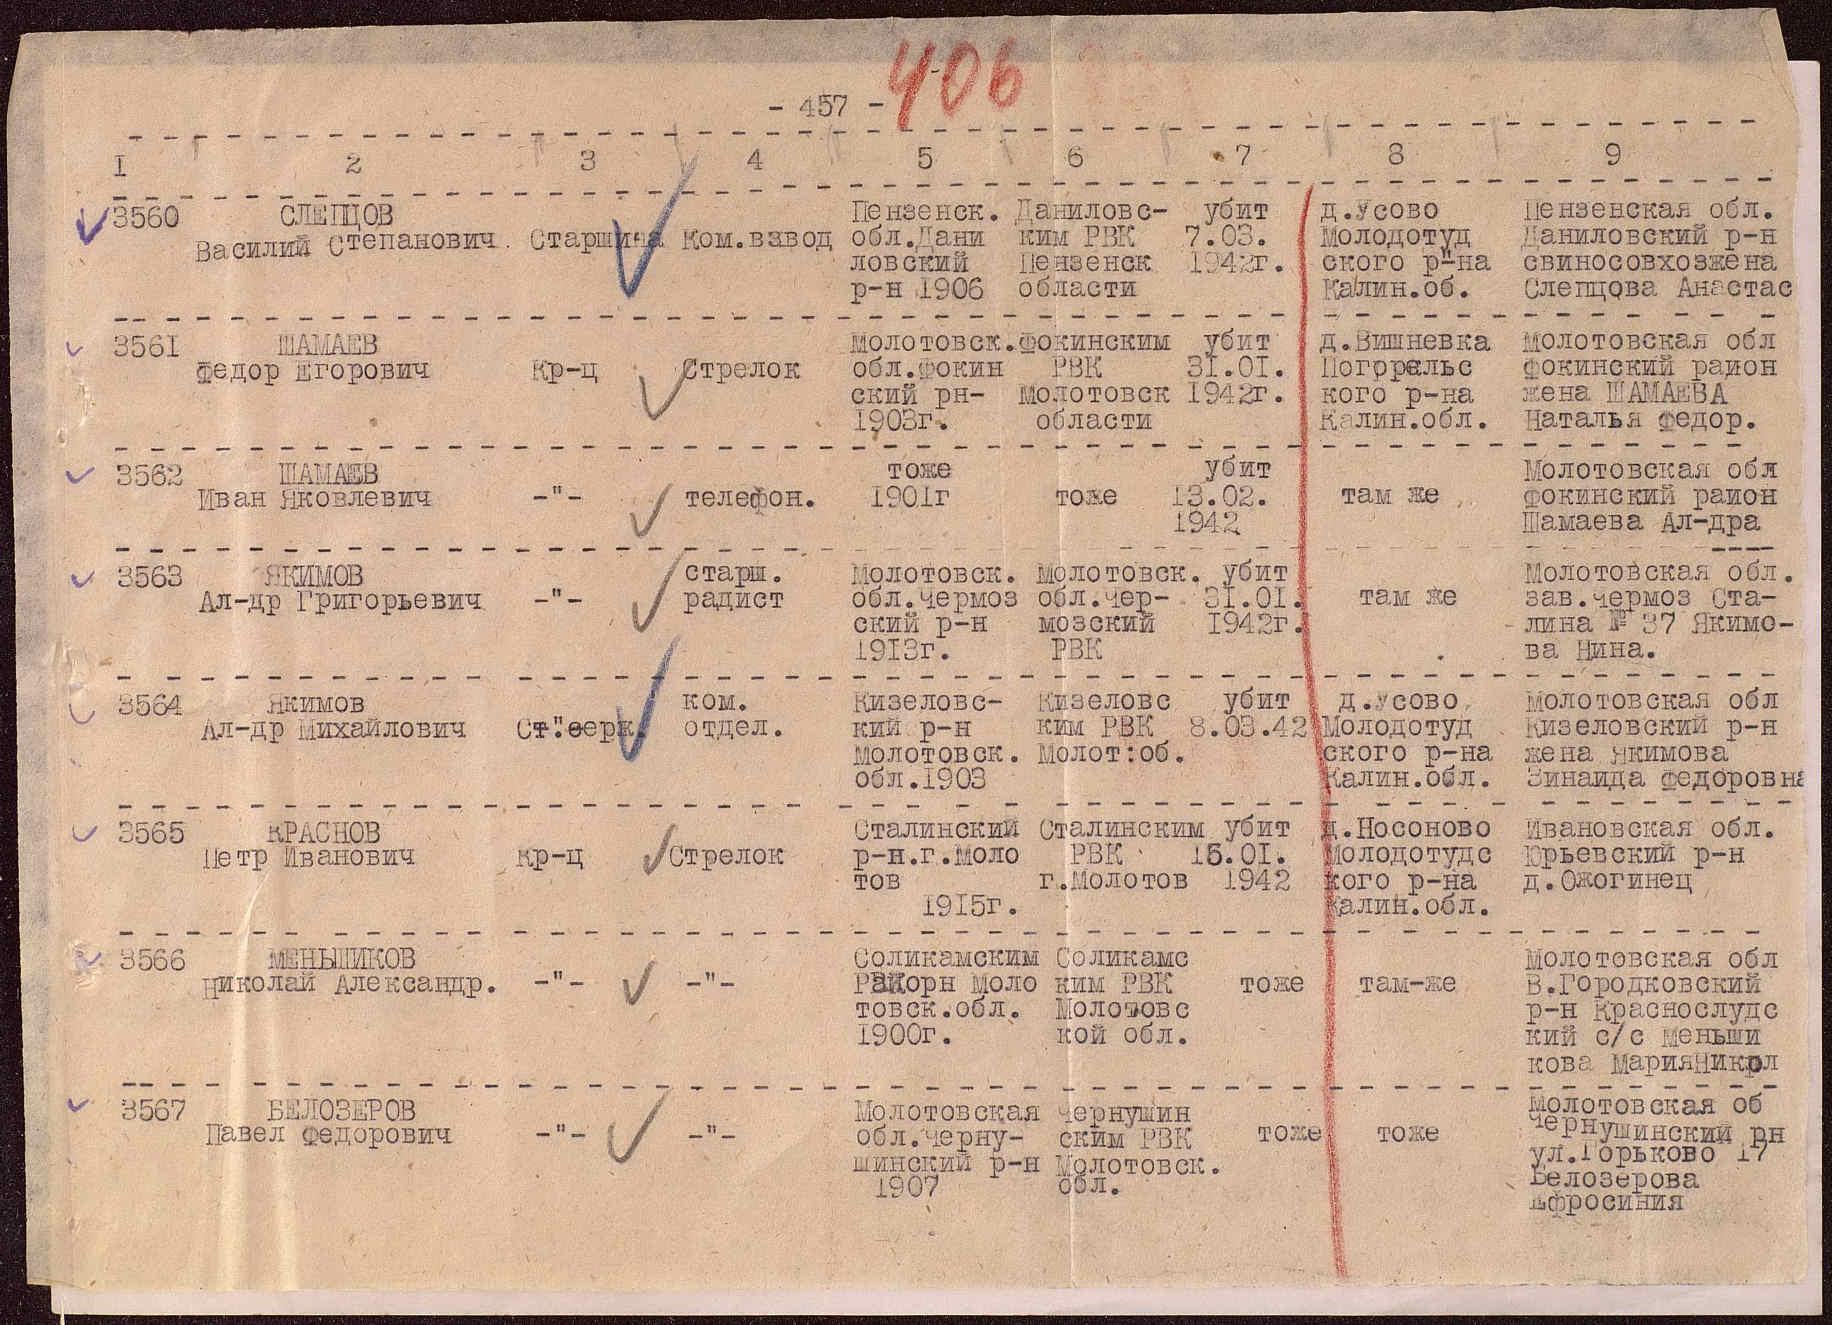 406
- 457 -
I 2 3 4 5 6 7 8 9
3560 СЛЕПЦОВ Пензенск. Даниловс- убит д.Усово Пензенская обл.
Василий Степанович Старшина Ком.взвод обл.Дани ким РВК 7.03. Молодотуд Даниловский р-н
ловский Пензенск 1942г. ского р-на свиносовхозжена
р-н 1906 области Калин.об. Слепцова Анастас
3561 ШАМАЕВ Молотовск. Фокинским убит д.Вишневка Молотовская обл
Федор Егорович Кр-ц Стрелок обл.Фокин РВК 31.0I. Погорельс Фокинский район
ский рн- Молотовск 1942г. кого р-на жена ШАМАЕВА
1903г. области Калин.обл. Наталья Федор.
3562 ШАМАЕВ тоже убит Молотовская обл
Иван Яковлевич -"- телефон. 190Iг тоже 13.02. там же Фокинский район
1942 Шамаева Ал-дра
3563 ЯКИМОВ старш. Молотовск. Молотовск. убит Молотовская обл.
Ал-др Григорьевич -"- радист обл.Чермоз обл.Чер- 31.0I. там же зав.Чермоз Ста-
ский р-н мозский 1942г. лина № 37 Якимо-
1913г. РВК ва Нина.
3564 Якимов ком. Кизеловс- Кизеловс убит д.Усово Молотовская обл
Ал-др Михайлович Ст.серж. отдел. кий р-н ким РВК 8.03.42 Молодотуд Кизеловский р-н
Молотовск. Молот:об. ского р-на жена Якимова
обл.1903 Калин.обл. Зинаида Федоровна
3565 КРАСНОВ Сталинский Сталинским убит д.Носоново Ивановская обл.
Петр Иванович Кр-ц Стрелок р-н.г.Моло РВК 15.0I. Молодотудс Юрьевский р-н
тов г.Молотов 1942 кого р-на д.Ожогинец
1915г. Калин.обл.
3566 МЕНЬШИКОВ Соликамским Соликамс Молотовская обл
Николай Александр. -"- -"- Моло ким РВК тоже там-же В.Городковский
товск.обл. Молотовс р-н Краснослудс
1900г. кой обл. кий с/с Меньши
кова МарияНикол
3567 БЕЛОЗЕРОВ Молотовская Чернушин Молотовская об
Павел Федорович -"- -"- обл.Черну- ским РВК тоже тоже Чернушинский рн
шинский р-н Молотовск. ул.Горьково 17
1907 обл. Белозерова
Ефросиния